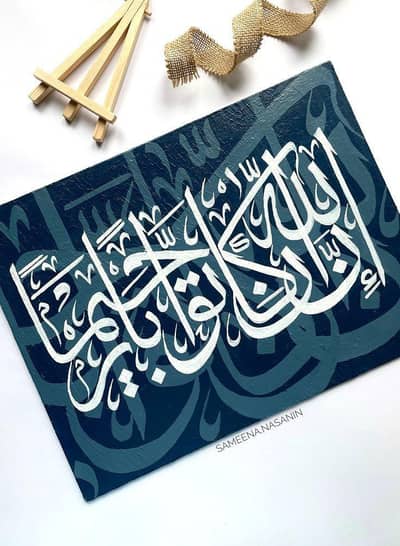 إِنَّ اللّٰهَ كَانَ تَوَّابًا رَّحِيمًا
SAMEENA.NASANIN